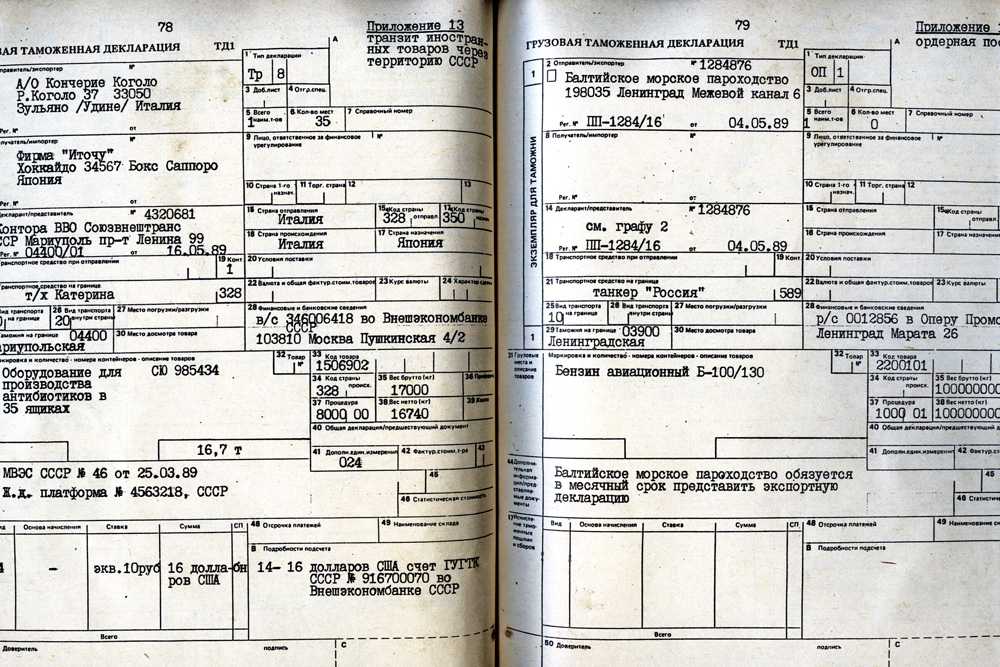 78
Приложение 13
транзит иностран-
ных товаров через
территорию СССР
ВАЯ ТАМОЖЕННАЯ ДЕКЛАРАЦИЯ ТД1
А
1 Тип декларации
Тр 8
правитель/экспортер №
А/О Кончерие Коголо
Р.Коголо 37 33050
Зульяно /Удине/ Италия
3 Доб.лист 4 Отгр.спец.
5 Всего наим.т-ов 6 Кол-во мест 7 Справочный номер
1 35
Рег. № от
9 Лицо, ответственное за финансовое № урегулирование
лучатель/импортер №
Фирма "Иточу"
Хоккайдо 34567 Бокс Саппоро
Япония
10 Страна 1-го назнач. 11 Торг. страна 12 13
Рег. № от
Декларант/представитель № 4320681
15 Страна отправления 15а Код страны отправл. 17а Код страны
Италия 328 350
Контора ВВО Союзвнештранс
ССР Мариуполь пр-т Ленина 99
Рег. № 04400/01 от 16.05.89
16 Страна происхождения 17 Страна назначения
Италия Япония
ранспортное средство при отправлении 19 Конт 20 Условия поставки
1
ранспортное средство на границе
т/х Катерина 328
22 Валюта и общая фактур.стоим.товаров 23 Курс валюты 24 Характер сделки
26 Вид транспорта внутри страны 27 Место погрузки/разгрузки
20
28 Финансовые и банковские сведения
в/с 346006418 во Внешэкономбанке
СССР
103810 Москва Пушкинская 4/2
аможня на границе 04400 30 Место досмотра товара
ариупольская
ркировка и количество - номера контейнеров - описание товаров
32 Товар № 33 Код товара
1506902
Оборудование для СЮ 985434
производства
антибиотиков в
35 ящиках
34 Код страны происх. 35 Вес брутто (кг)
328 17000
37 Процедура 38 Вес нетто (кг)
8000 00 16740
40 Общая декларация/предшествующий документ
16,7 т
41 Дополн.един.измерения 42 Фактур.стоим.т-ра 43
024
МВЭС СССР № 46 от 25.03.89
45
Ж.д. платформа № 4563218, СССР
46 Статистическая стоимость
Основа начисления Ставка Сумма СП
48 Отсрочка платежей 49 Наименование склада
В Подробности подсчета
4 – экв.10руб 16 долла- бн
ров США
14- 16 долларов США счет ГУГТК
СССР № 916700070 во
Внешэкономбанке СССР
Всего
Доверитель подпись С
79
Приложение
ордерная по
ГРУЗОВАЯ ТАМОЖЕННАЯ ДЕКЛАРАЦИЯ ТД1
А
1 Тип декларации
ОП 1
1
ЭКЗЕМПЛЯР ДЛЯ ТАМОЖНИ
2 Отправитель/экспортер № 1284876
Балтийское морское пароходство
198035 Ленинград Межевой канал 6
Рег. № ПП-1284/16 от 04.05.89
3 Доб.лист 4 Отгр.спец.
5 Всего наим.т-ов 6 Кол-во мест 7 Справочный номер
1 0
8 Получатель/импортер №
Рег. № от
9 Лицо, ответственное за финансовое № урегулирование
10 Страна 1-го назнач. 11 Торг. страна 12
14 Декларант/представитель № 1284876
см. графу 2
Рег. № ПП-1284/16 от 04.05.89
15 Страна отправления 15а Код страны отправл.
16 Страна происхождения 17 Страна назначения
18 Транспортное средство при отправлении 19 Конт 20 Условия поставки
21 Транспортное средство на границе
танкер "Россия" 589
22 Валюта и общая фактур.стоим.товаров 23 Курс валюты
25 Вид транспорта на границе 26 Вид транспорта внутри страны 27 Место погрузки/разгрузки
10
28 Финансовые и банковские сведения
р/с 0012856 в Оперу Промс
Ленинград Марата 26
1
29 Таможня на границе 03900 30 Место досмотра товара
Ленинградская
31 Грузовые места и описание товаров
Маркировка и количество - номера контейнеров - описание товаров
32 Товар № 33 Код товара
2200101
Бензин авиационный Б-100/130
34 Код страны происх. 35 Вес брутто (кг)
100000000
37 Процедура 38 Вес нетто (кг)
1000 01 100000000
40 Общая декларация/предшествующий
41 Дополн.един.измерения 42 Фактур.стоим.т-ра
44 Дополнительная информация/представленные документы
Балтийское морское пароходство обязуется
в месячный срок представить экспортную
декларацию
45
46 Статис
47 Исчисление таможенных пошлин и сборов
Вид Основа начисления Ставка Сумма СП
48 Отсрочка платежей 49 Наименование
В Подробности подсчета
Всего
50 Доверитель подпись С